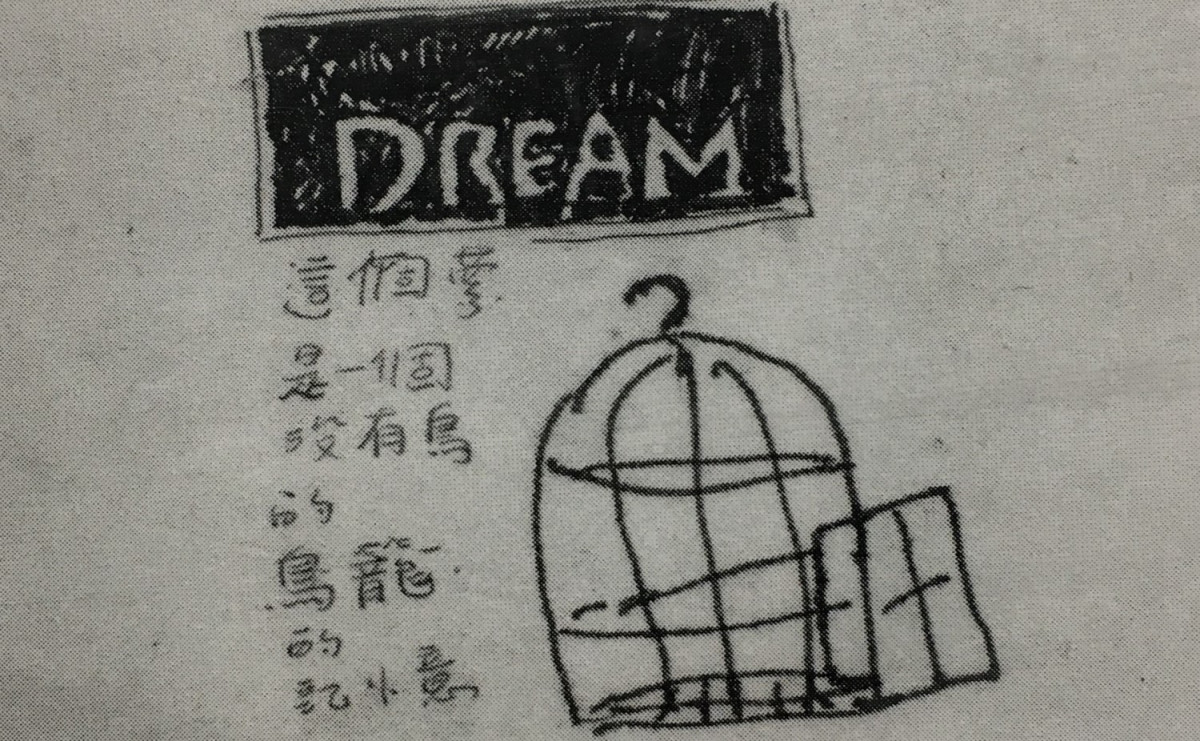 DREAM
這個夢
是一個
沒有鳥
的
鳥籠
的
記憶